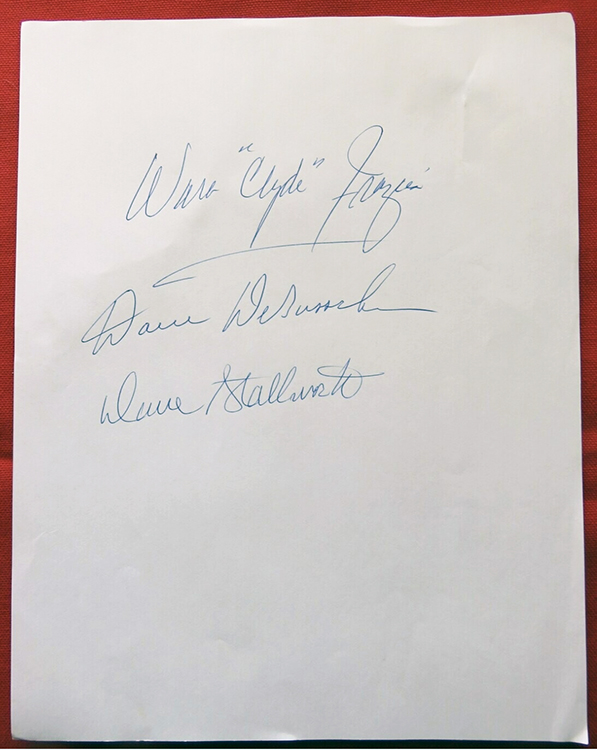 Walt "Clyde" Frazier
Dave DeBusschere
Dave Stallworth